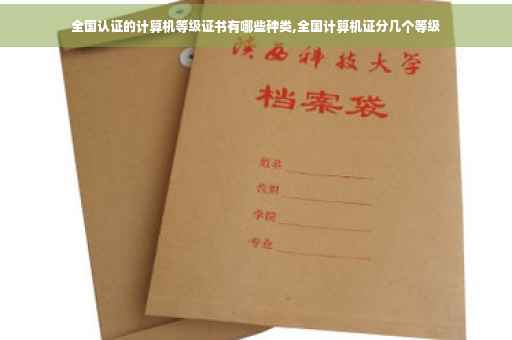 全国认证的计算机等级证书有哪些种类,全国计算机证分几个等级
陕西科技大学
档案袋
姓名
学院
专业